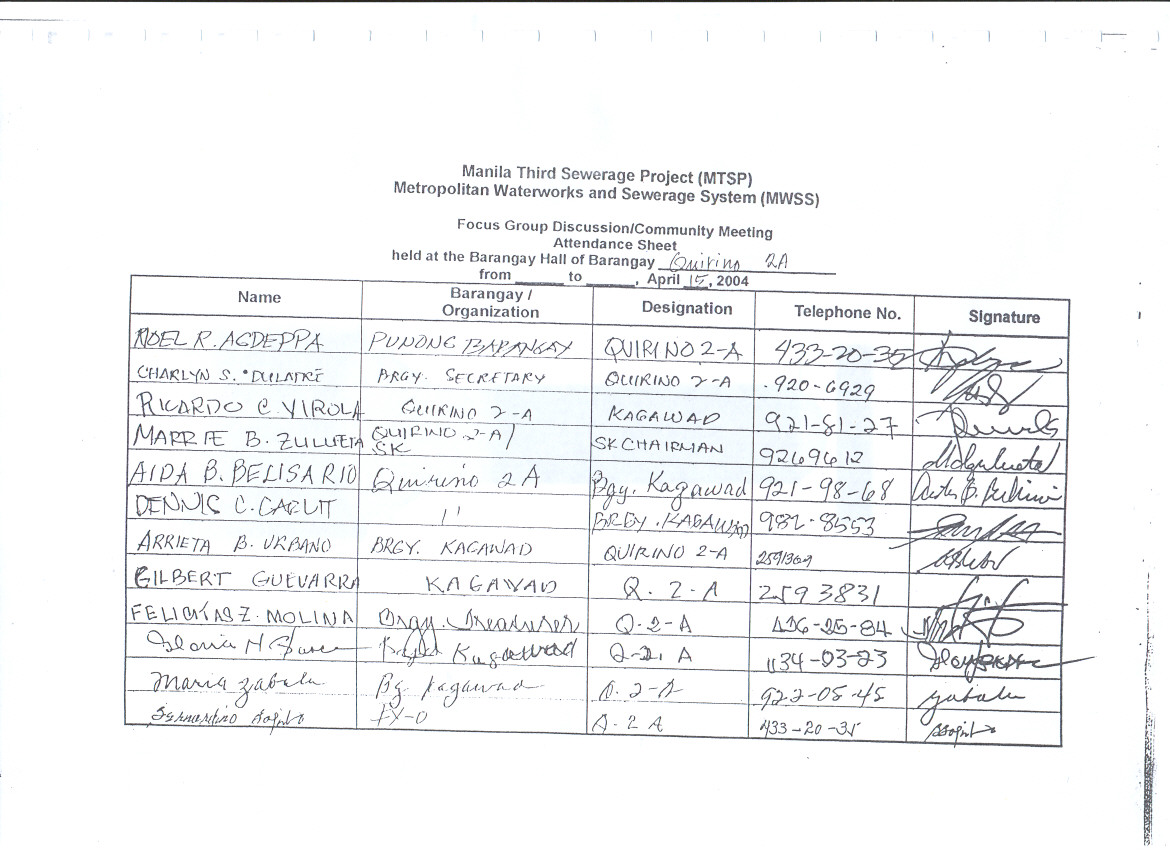 Manila Third Sewerage Project (MTSP)
Metropolitan Waterworks and Sewerage System (MWSS)
Focus Group Discussion/Community Meeting
Attendance Sheet
held at the Barangay Hall of Barangay Quirino 2A
from ______ to ______, April 15, 2004
Name Barangay / Organization Designation Telephone No. Signature
NOEL R. AGDEPPA PUNONG BARANGAY QUIRINO 2-A 433-20-35
CHARLYN S. DULATRE BRGY. SECRETARY QUIRINO 2-A 920-6929
RICARDO C. VIROLA QUIRINO 2-A KAGAWAD 921-81-27
MARRIE B. ZULUETA QUIRINO 2-A/ SK SK CHAIRMAN 9269612
AIDA B. BELISARIO Quirino 2A Bgy. Kagawad 921-98-68
DENNIS C. " BRGY. KAGAWAD 982-8553
ARRIETA B. URBANO BRGY. KAGAWAD QUIRINO 2-A
GILBERT GUEVARRA KAGAWAD Q. 2-A 2593831
FELICITAS Z. MOLINA Brgy. Treasurer Q-2-A 436-25-84
Kagawad Q-2. A 434-03-23
Maria Zabala Bg Kagawad Q. 2-A 922-05-45 Zabala
EX-O Q-2A 433-20-35